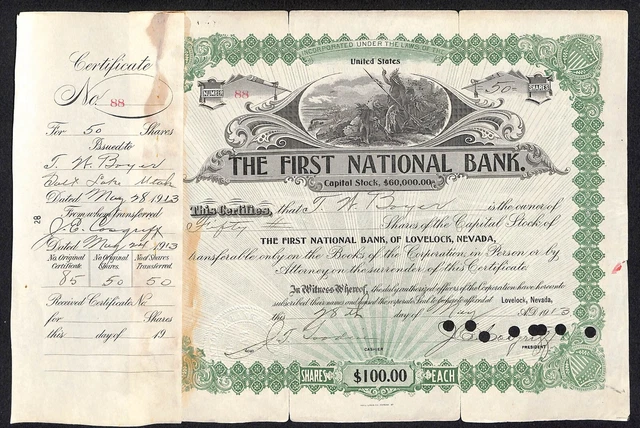 Certificate
No. 88
For 50 Shares
Issued to
T. W. Boyer
Salt Lake Utah
Dated May 28 1913
From whom Transferred
J. E. Cosgriff
Dated May 24 1913
No. Original Certificate No. Original Shares No. of Shares Transferred
85 50 50
Received Certificate No
for Shares
this day of 19
28
INCORPORATED UNDER THE LAWS OF THE
United States
NUMBER 88
50 SHARES
THE FIRST NATIONAL BANK.
Capital Stock, $60,000.00
This Certifies, that T. W. Boyer is the owner of
Fifty Shares of the Capital Stock of
THE FIRST NATIONAL BANK, OF LOVELOCK, NEVADA,
transferable only on the Books of the Corporation, in Person or by
Attorney on the surrender of this Certificate
In Witness Whereof, the duly authorized officers of this Corporation have hereunto
subscribed their names and caused the corporate Seal to be hereto affixed at Lovelock, Nevada.
this 28th day of May A.D. 1913
J. T.
J. E. Cosgriff
CASHIER
PRESIDENT
SHARES $100.00 EACH